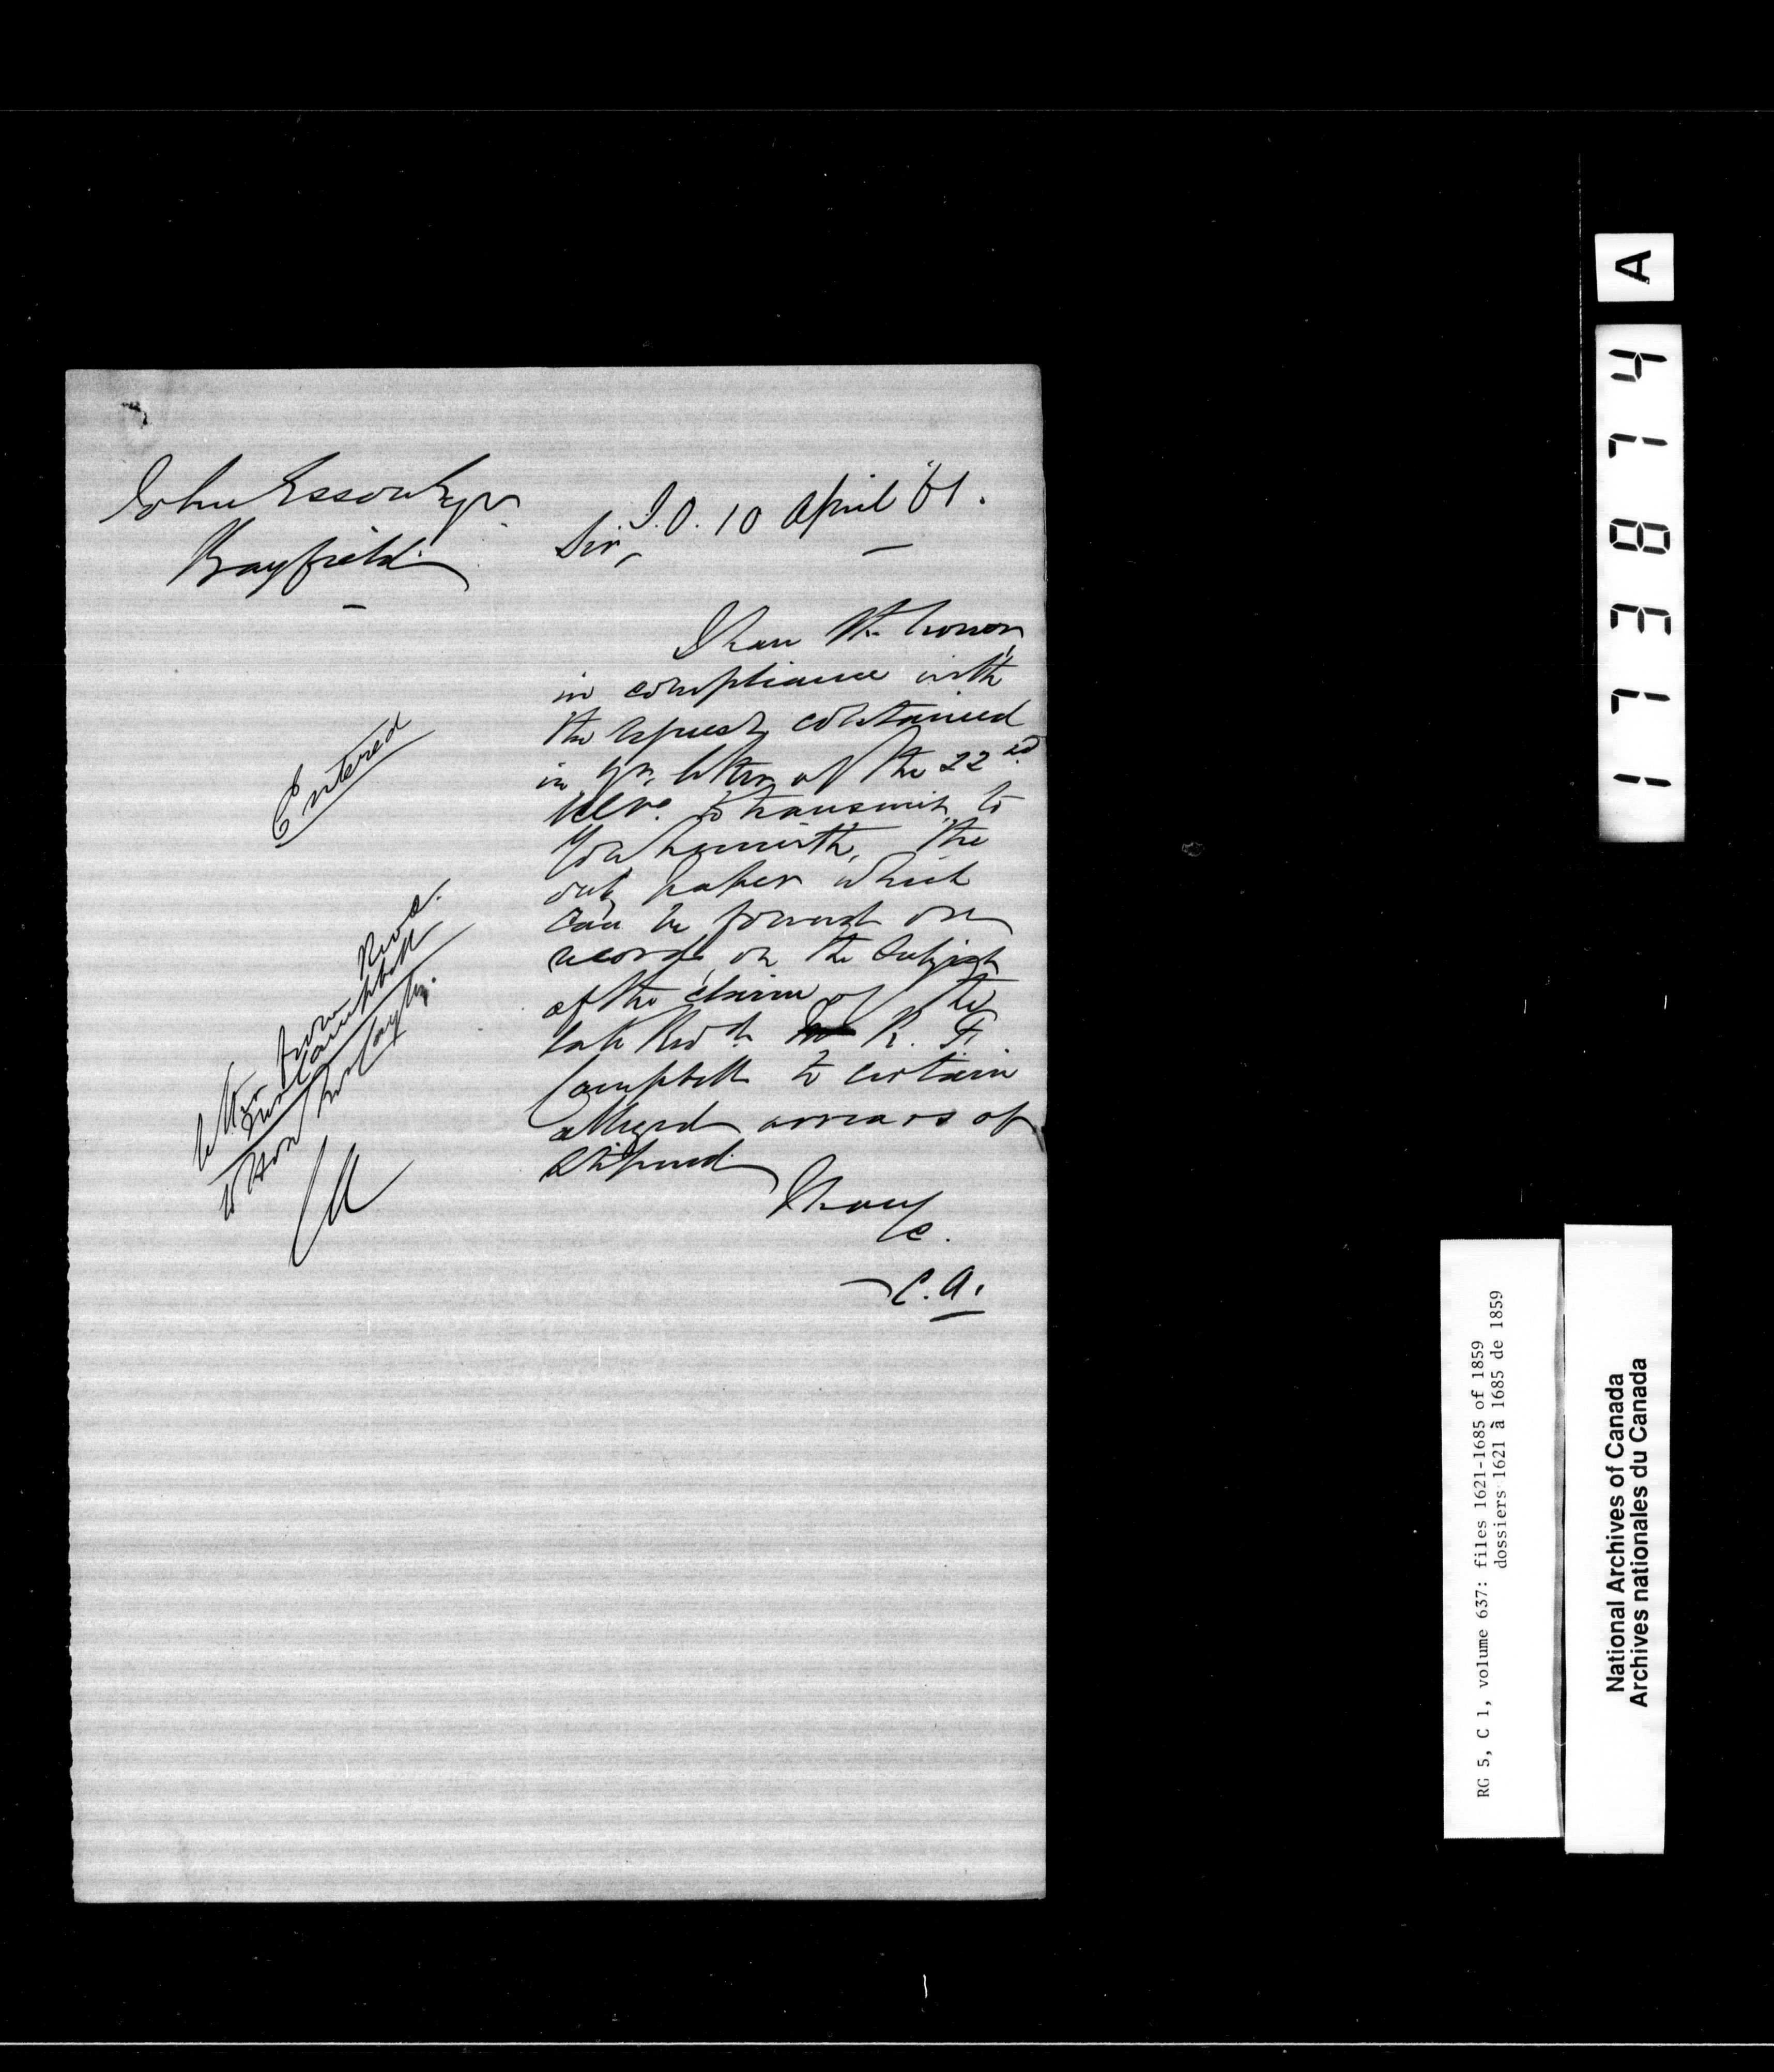 John Esson Esqr.
Bayfield
S.O. 10 April '61.
Sir,
I have the honor,
in compliance with
the request contained
in yr. letter of the 22nd
to transmit to
you herewith, the
only paper which
can be found on
record on the subject
of the claim of the
late Revd. R. F.
Campbell to certain
alleged arrears of
stipend
I have
&c.
C.A.
Entered
letter from Revd.
Campbell
to Hon Mr Cayley.
A
173874
RG 5, C 1, volume 637: files 1621-1685 of 1859
dossiers 1621 à 1685 de 1859
National Archives of Canada
Archives nationales du Canada